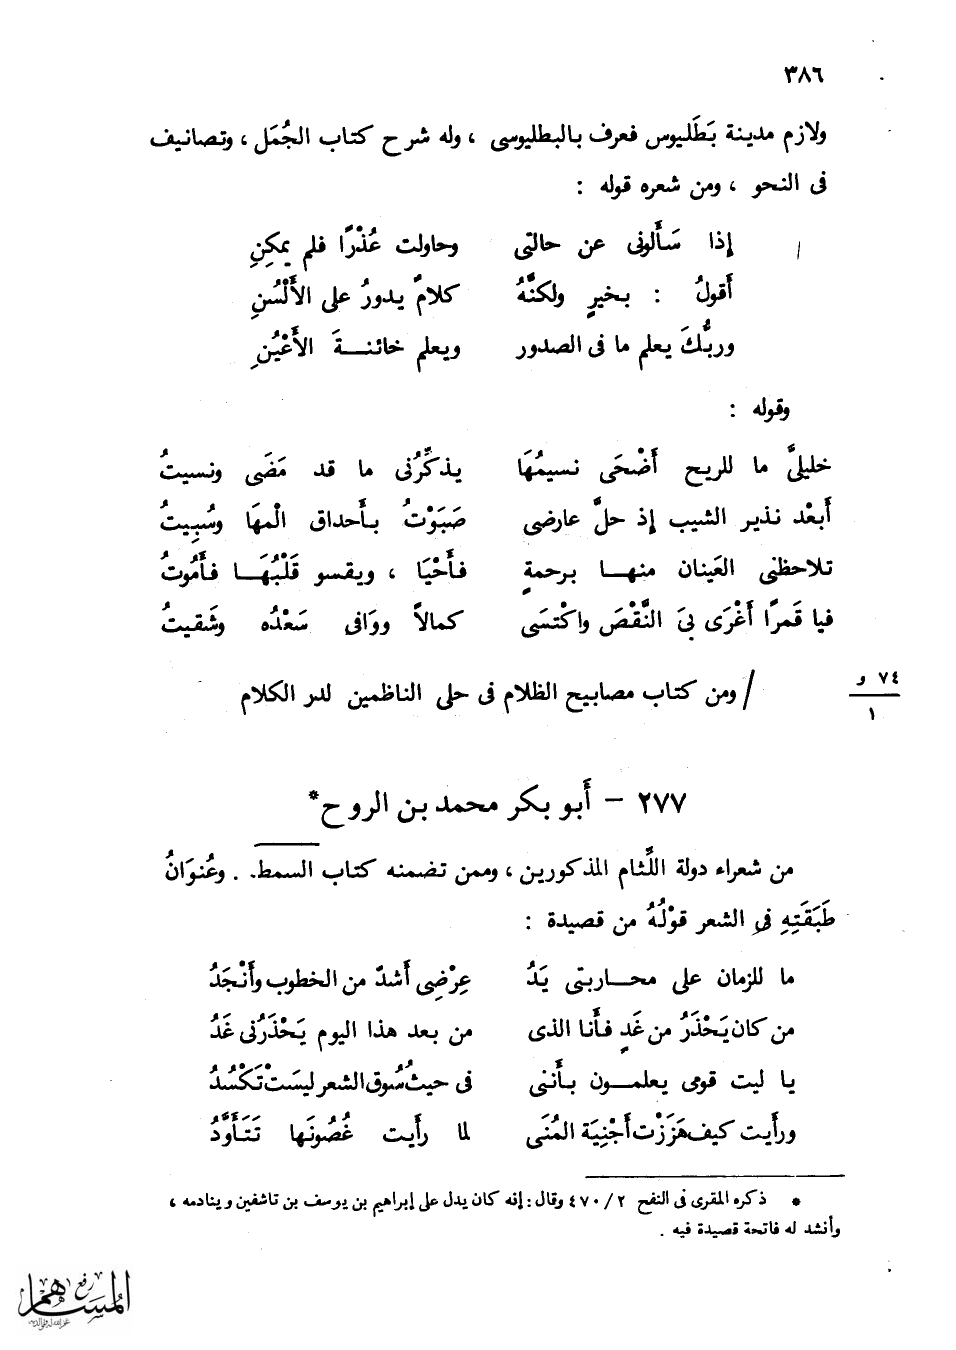 ٣٨٦
ولازم مدينة بَطَليوس فعرف بالبطليوسى ، وله شرح كتاب الجُمَل ، وتصانيف
فى النحو ، ومن شعره قوله :
إذا سَأَلونى عن حالتى وحاولت عُذْرًا فلم يمكِنِ
أَقولُ : بخيرٍ ولكنَّهُ كلامٌ يدورُ على الأَلْسُنِ
وربُّكَ يعلم ما فى الصدور ويعلم خائنـــةَ الأَعْيُنِ
وقوله :
خليلىَّ ما للريح أَضْحَى نسيمُهَا يذكِّرُنى ما قد مَضَى ونسيتُ
أَبعْد نذير الشيب إذ حلَّ عارضى صَبَوْتُ بأَحداق الْمهَا وسُبِيتُ
تلاحظنى العَينان منهـــا برحمةٍ فأَحْيَا ، ويقسو قَلْبُهَــا فأَمُوتُ
فيا قَمرًا أَغْرَى بىَ النَّقْصَ واكْتسَى كمالاً ووَافى سَعْدُه وشَقيتُ
٧٤ و
١
/ ومن كتاب مصابيح الظلام فى حلى الناظمين لدر الكلام
٢٧٧ – أَبو بكر محمد بن الروح*
من شعراء دولة اللِّثام المذكورين ، وممن تضمنه كتاب السمط . وعُنوَانُ
طَبَقَتِهِ فى الشعر قوْلُهُ من قصيدة :
ما للزمان على محـــاربتى يَدُ عِرْضِى أَشدّ من الخطوب وأَنْجَدُ
من كان يَحْذَرُ من غَدٍ فأَنا الذى من بعد هذا اليوم يَحْذَرُنى غَدُ
يا ليت قومى يعلمـــون بأَننى فى حيثُ سُوق الشعر ليسَتْ تَكْسُدُ
ورأَيت كيف هَزَزْت أَجْنِيَة المُنَى لما رأَيت غُصُونَها تَتَأَوَّدُ
* ذكره المقرى فى النفح ٢ / ٤٧٠ وقال : إنه كان يدل على إبراهيم بن يوسف بن تاشفين وينادمه ،
وأنشد له فاتحة قصيدة فيه .
رفع
المساهم